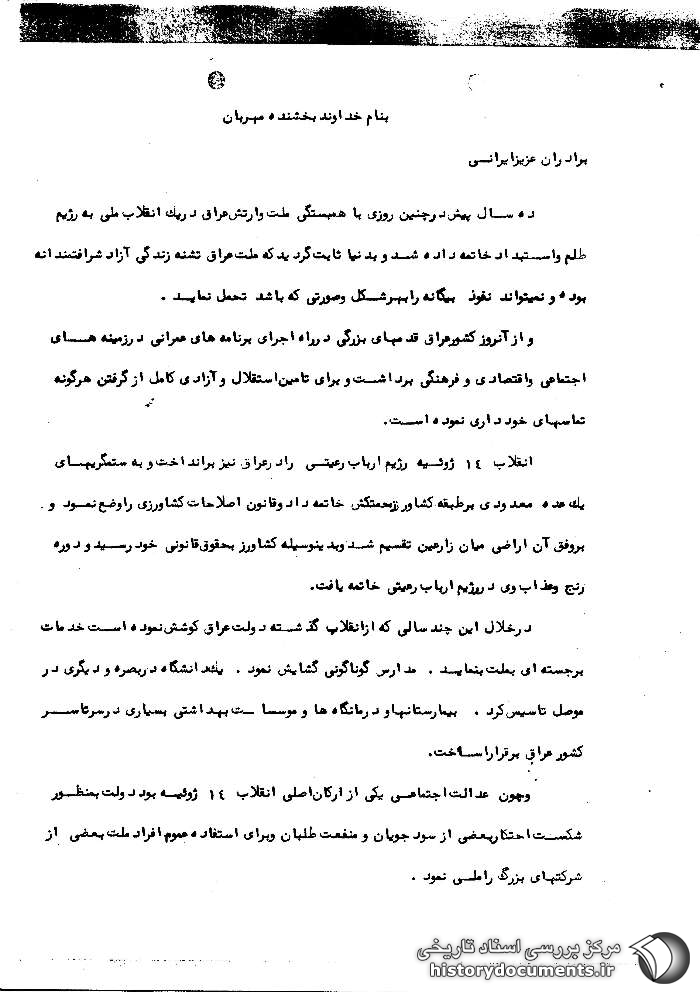 بنام خداوند بخشنده مهربان
برادران عزیز ایرانی
ده سال پیش در چنین روزی با همبستگی ملت وارتش عراق در یك انقلاب ملی به رژیم
ظلم واستبداد خاتمه داده شد و بدنیا ثابت گردید که ملت عراق تشنه زندگی آزاد شرافتمندانه
بوده و نمیتواند نفوذ بیگانه را بهر شکل وصورتی که باشد تحمل نماید .
و از آنروز کشور عراق قدمهای بزرگی در راه اجرای برنامه های عمرانی در زمینه های
اجتماعی واقتصادی و فرهنگی برداشت و برای تامین استقلال و آزادی کامل از گرفتن هرگونه
تماسهای خودداری نموده است.
انقلاب ١٤ ژوئیه رژیم ارباب رعیتی را در عراق نیز برانداخت و به ستمگریهای
یك عده معدودی بر طبقه کشاورز زحمتکش خاتمه داد وقانون اصلاحات کشاورزی را وضع نمود و
بروفق آن اراضی میان زارعین تقسیم شد وبدینوسیله کشاورز بحقوق قانونی خود رسید و دوره
رنج وعذاب وی در رژیم ارباب رعیتی خاتمه یافت.
در خلال این چند سالی که از انقلاب گذشته دولت عراق کوشش نموده است خدمات
برجسته ای بملت بنماید . مدارس گوناگونی گشایش نمود . یك دانشگاه در بصره و دیگری در
موصل تاسیس کرد . بیمارستانها و درمانگاه ها و موسسات بهداشتی بسیاری در سرتاسر
کشور عراق برقرار ساخت.
وچون عدالت اجتماعی یکی از ارکان اصلی انقلاب ١٤ ژوئیه بود دولت بمنظور
شکست احتکار بعضی از سودجویان و منفعت طلبان وبرای استفاده عموم افراد ملت بعضی از
شرکتهای بزرگ را ملی نمود .
مرکز بررسی اسناد تاریخی
historydocuments.ir